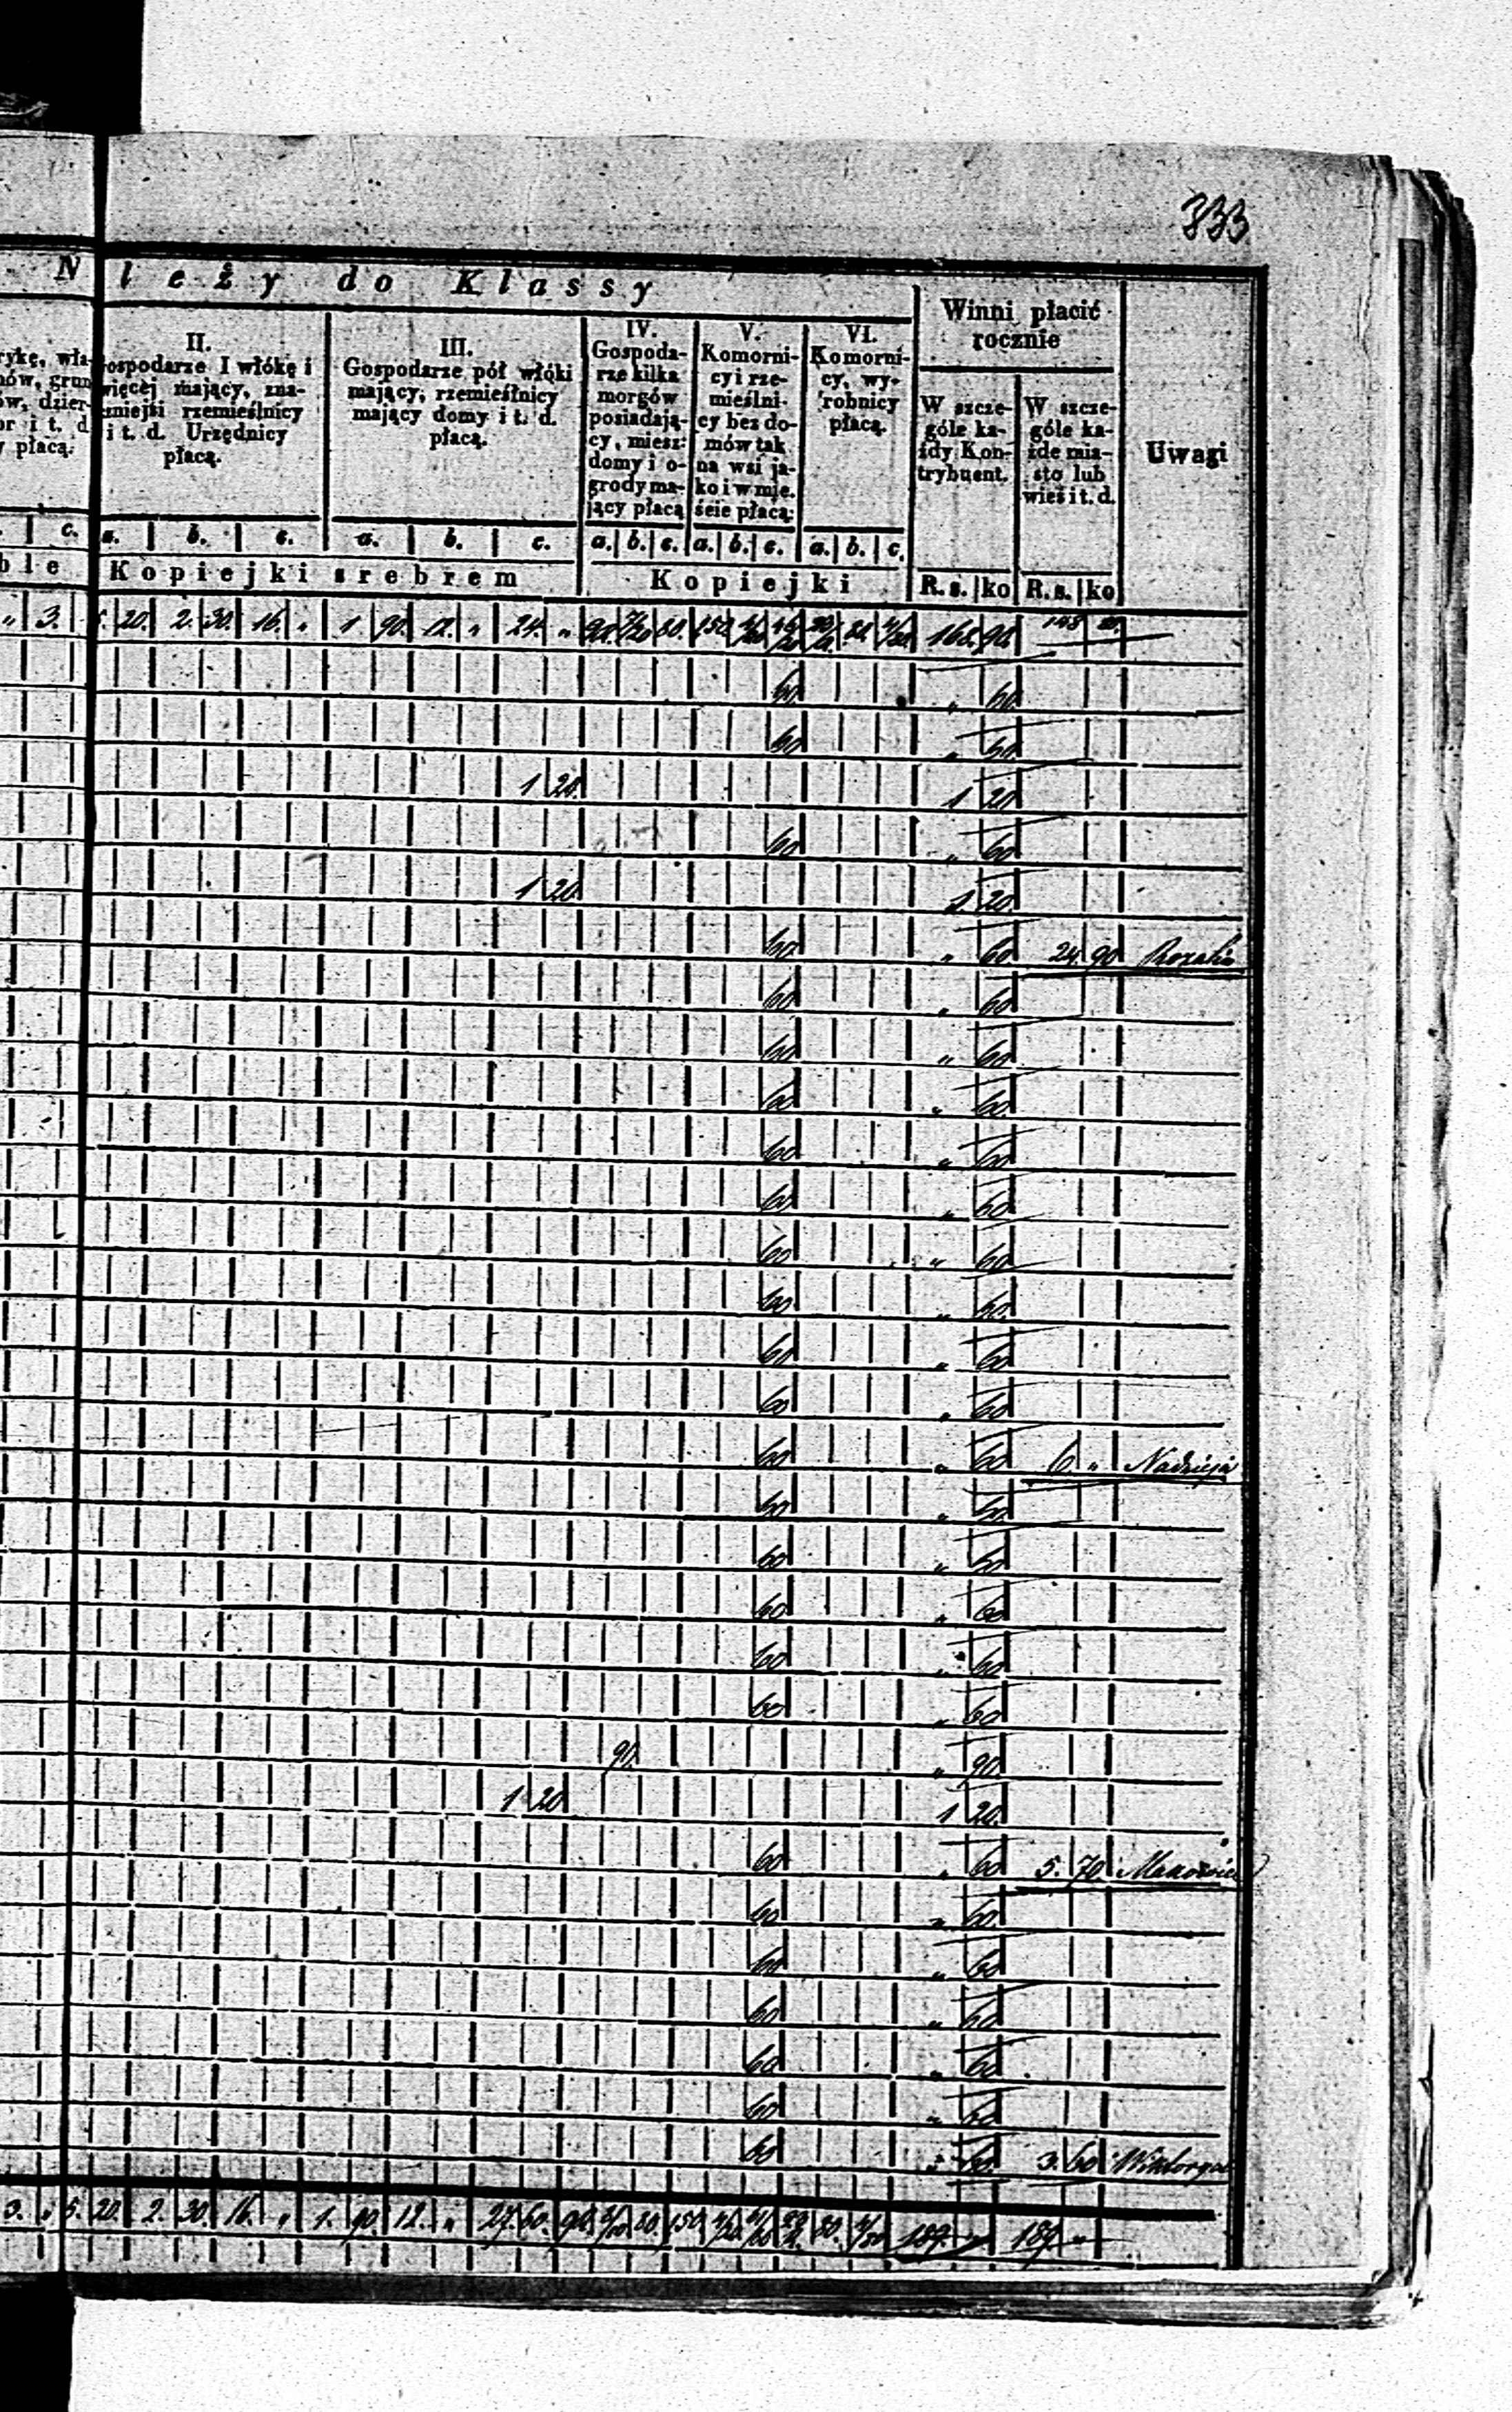 333
N leży do Klassy
Winni płacić
rocznie
Uwagi
rykę, wła-
nów, grun
ów, dzier-
or i t. d.
y płacą.
II.
Gospodarze I włókę i
więcej mający, zna-
czniejsi rzemieślnicy
i t. d. Urzędnicy
płacą.
III.
Gospodarze pół włóki
mający, rzemieślnicy
mający domy i t. d.
płacą.
IV.
Gospoda-
rze kilka
morgów
posiadają-
cy, miesz:
domy i o-
grody ma-
jący płacą
V.
Komorni-
cy i rze-
mieślni-
cy bez do-
mów tak
na wsi ja-
ko i w mie-
ście płacą:
VI.
Komorni-
cy, wy-
robnicy
płacą.
W szcze-
góle ka-
żdy Kon-
trybuent.
W szcze-
góle ka-
żde mia-
sto lub
wieś i t. d.
c. a. b. c. a. b. c. a. b. c. a. b. c. a. b. c.
ble Kopiejki srebrem Kopiejki R.s. ko R.s. ko
„ 3. 5. 20. 2. 30. 16. „ 1 90. 12. „ 24. „ 90. 80. 150 168 90
60 „ 60
60 „ 60
1 20. 1 20
60 „ 60
1 20. 1. 20.
60 „ 60 24 90 Rozalin
60 „ 60
60 „ 60
60 „ 60
60 „ 60
60 „ 60
60 „ 60
60 „ 60
60 „ 60
60 „ 60
60 „ 60 6. „ Nadzieja
60 „ 60
60 „ 60
60 „ 60
60 „ 60
60 „ 60
90. „ 90
1 20 1 20.
60 „ 60 5. 70.
60 „ 60
60 „ 60
60 „ 60
60 „ 60
60 „ 60
60 „ 60 3. 60
3. „ 5. 20. 2. 30. 16. „ 1. 90. 12. „ 27. 60. 90. 80. 150 80. 189 „ 189 „